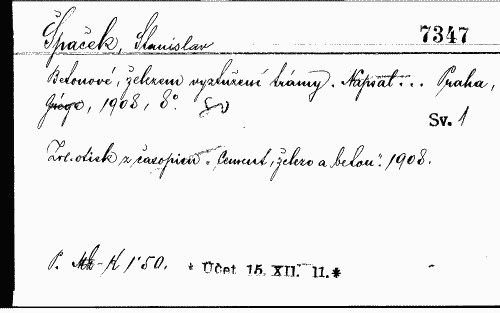 Špaček, Stanislav 7347
Betonové, železem vyztužení trámy. Napsal... Praha,
1908, 8°.
Sv. 1
Zvl. otisk z časopisu „Cement, železo a beton“. 1908.
P. K 1·50. * Účet 15. XII. 11. *